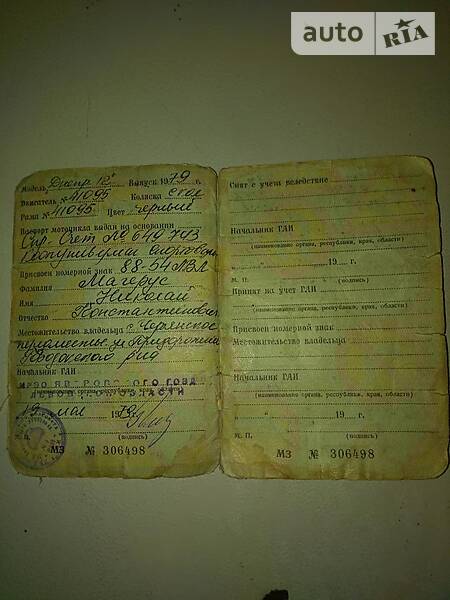 auto RIA
Модель Днепр 12 Выпуск 1979 г.
Двигатель № 41095 Коляска с кол
Рама № 41095 Цвет черный
Паспорт мотоцикла выдан на основании
Спр. Счет № 640743
Присвоен номерной знак 88-54 ЛВЛ
Фамилия Магерус
Имя Николай
Отчество Константинович
Местожительство владельца с. Чернянское
Начальник ГАИ
МРЭО ЯВОРОВСКОГО ГОВД
ЛЬВОВ ОБЛАСТИ
19 мая 1979 г.
М. П. (подпись)
МЗ № 306498
Снят с учета вследствие
Начальник ГАИ
(наименование органа, республики, края, области)
" " 19 г.
М. П. (подпись)
Принят на учет ГАИ
(наименование органа, республики, края, области)
Присвоен номерной знак
Местожительство владельца
Начальник ГАИ
(наименование органа, республики, края, области)
" " 19 г.
М. П. (подпись)
МЗ № 306498